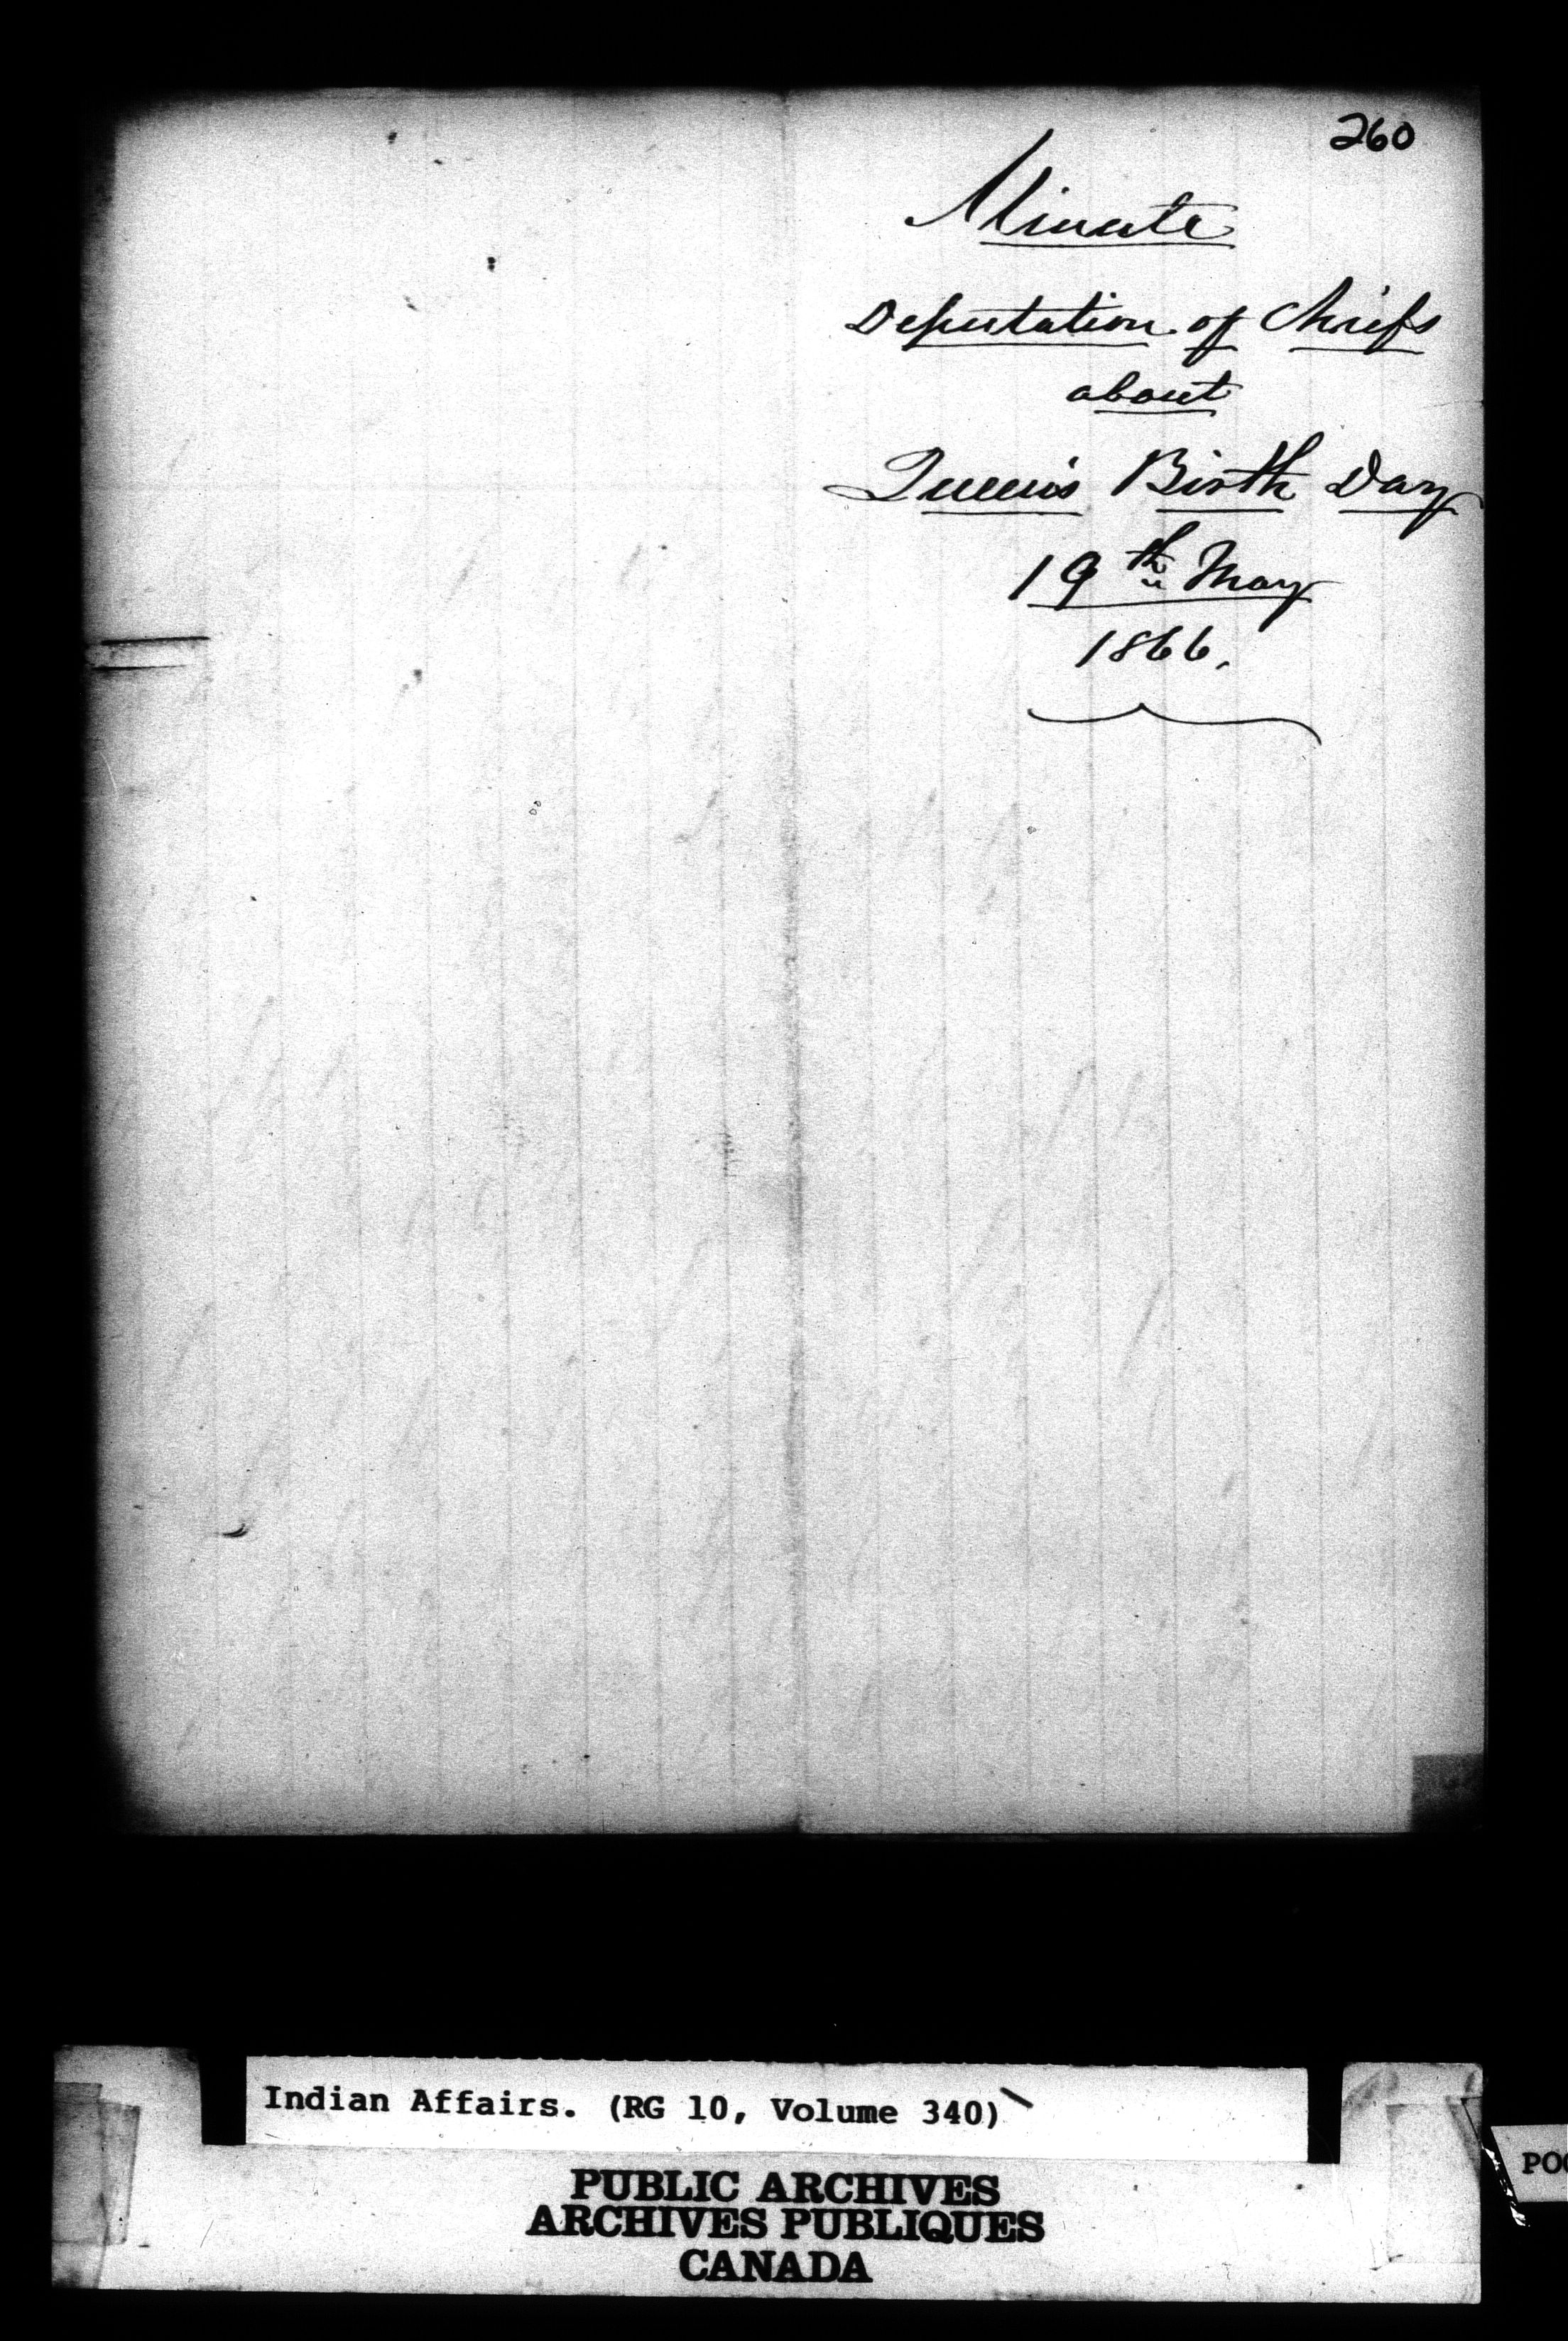 260
Minute
Deputation of Chiefs
about
Queen's Birth Day
19th May
1866.
Indian Affairs. (RG 10, Volume 340)
PUBLIC ARCHIVES
ARCHIVES PUBLIQUES
CANADA